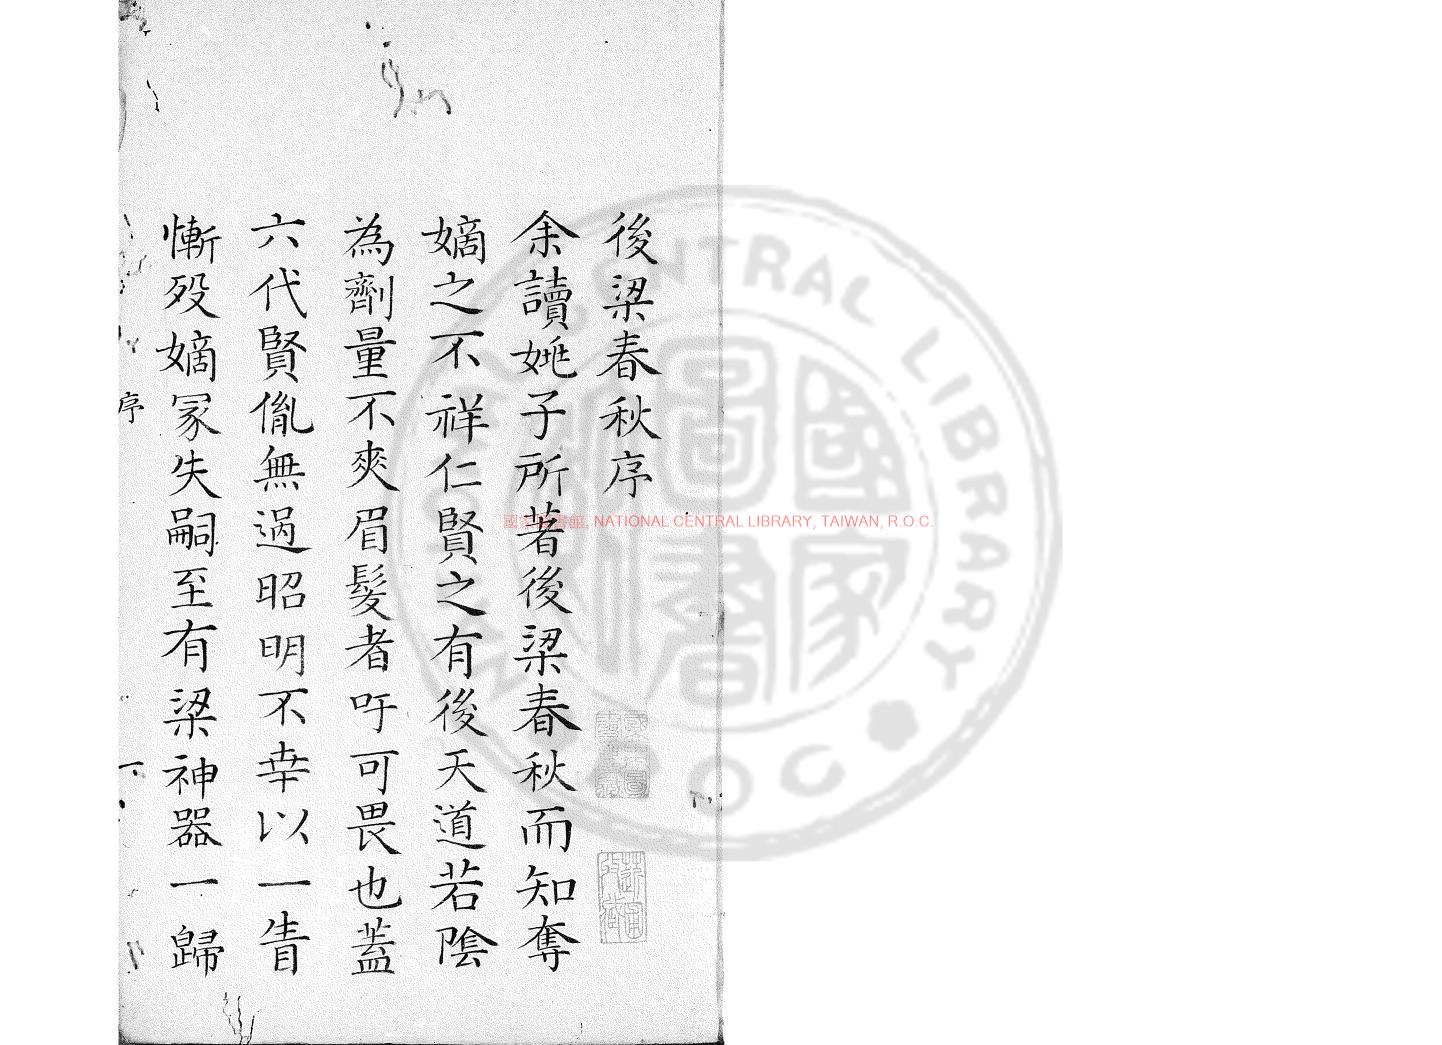 後梁春秋序
余讀姚子所著後梁春秋而知奪
嫡之不祥仁賢之有後天道若陰
為劑量不爽眉髮者吁可畏也蓋
六代賢胤無過昭明不幸以一眚
慚歿嫡冢失嗣至有梁神器一歸
序
一
NATIONAL CENTRAL LIBRARY, TAIWAN, R.O.C.
NATIONAL CENTRAL LIBRARY R.O.C.
國家圖書館